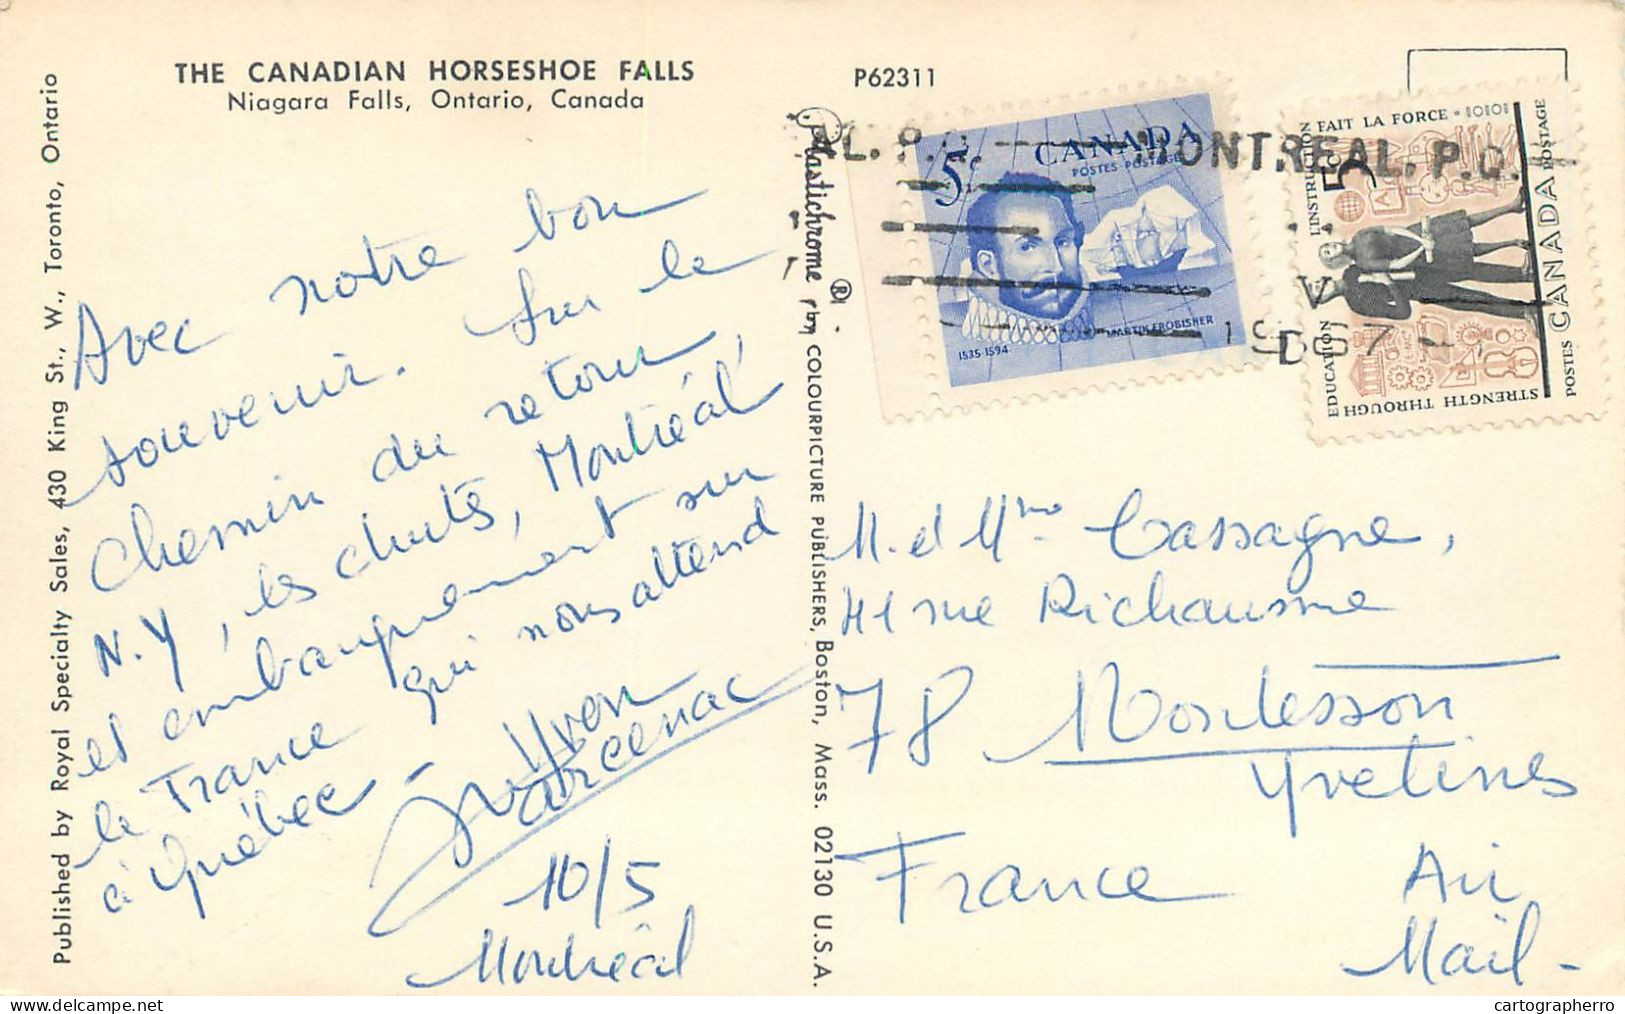 THE CANADIAN HORSESHOE FALLS
Niagara Falls, Ontario, Canada
P62311
Published by Royal Specialty Sales, 430 King St., W., Toronto, Ontario
Plastichrome ® by COLOURPICTURE PUBLISHERS, Boston, Mass. 02130 U.S.A.
Avec notre bon
souvenir. Sur le
chemin du retour,
N.Y, les chutes, Montréal,
et embarquement sur
le France qui nous attend
à Québec -
Yvon
10/5
Montréal
MONTREAL, P.Q.
1967
5c
CANADA
POSTES POSTAGE
MARTIN FROBISHER
1535-1594
L'INSTRUCTION FAIT LA FORCE
5c
EDUCATION
STRENGTH THROUGH
POSTES CANADA POSTAGE
M. et Mme Cassagne,
41 rue Richaume
78 Montesson
Yvelines
France
Air
Mail -
cartographerro